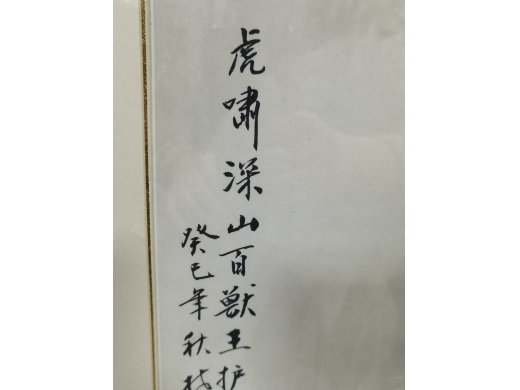 虎啸深山百獸王护
癸巳年秋